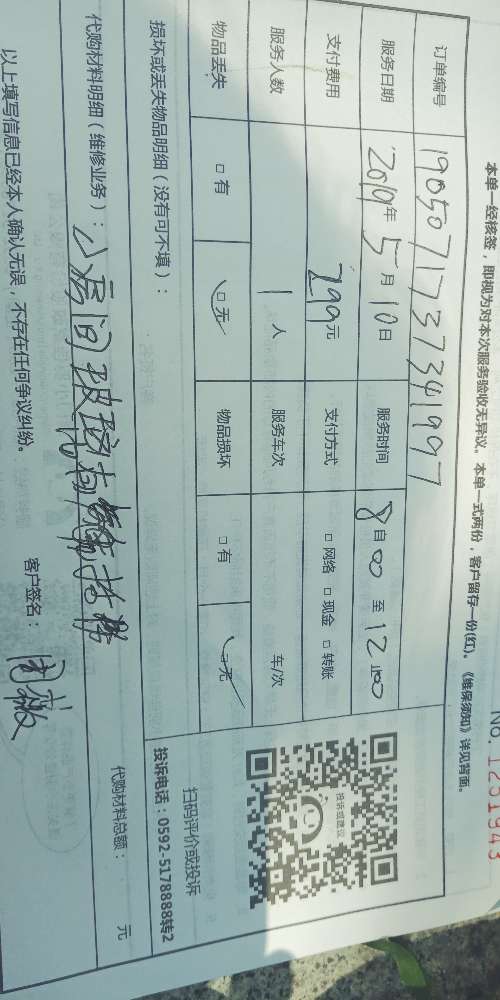 No.1251943
本单一经核签，即视为对本次服务验收无异议。本单一式两份，客户留存一份(红)。《维保须知》详见背面。
订单编号 1905071737341997
服务日期 2019年5月10日 服务时间 8自00至12:00
支付费用 299元 支付方式 □网络 □现金 □转账
服务人数 1人 服务车次 车/次
物品丢失 □有 □无 物品损坏 □有 □无
投诉或建议
扫码评价或投诉
投诉电话：0592-5178888转2
损坏或丢失物品明细（没有可不填）：
代购材料明细（维修业务）： 房间玻璃
代购材料总额： 元
以上填写信息已经本人确认无误，不存在任何争议纠纷。 客户签名：